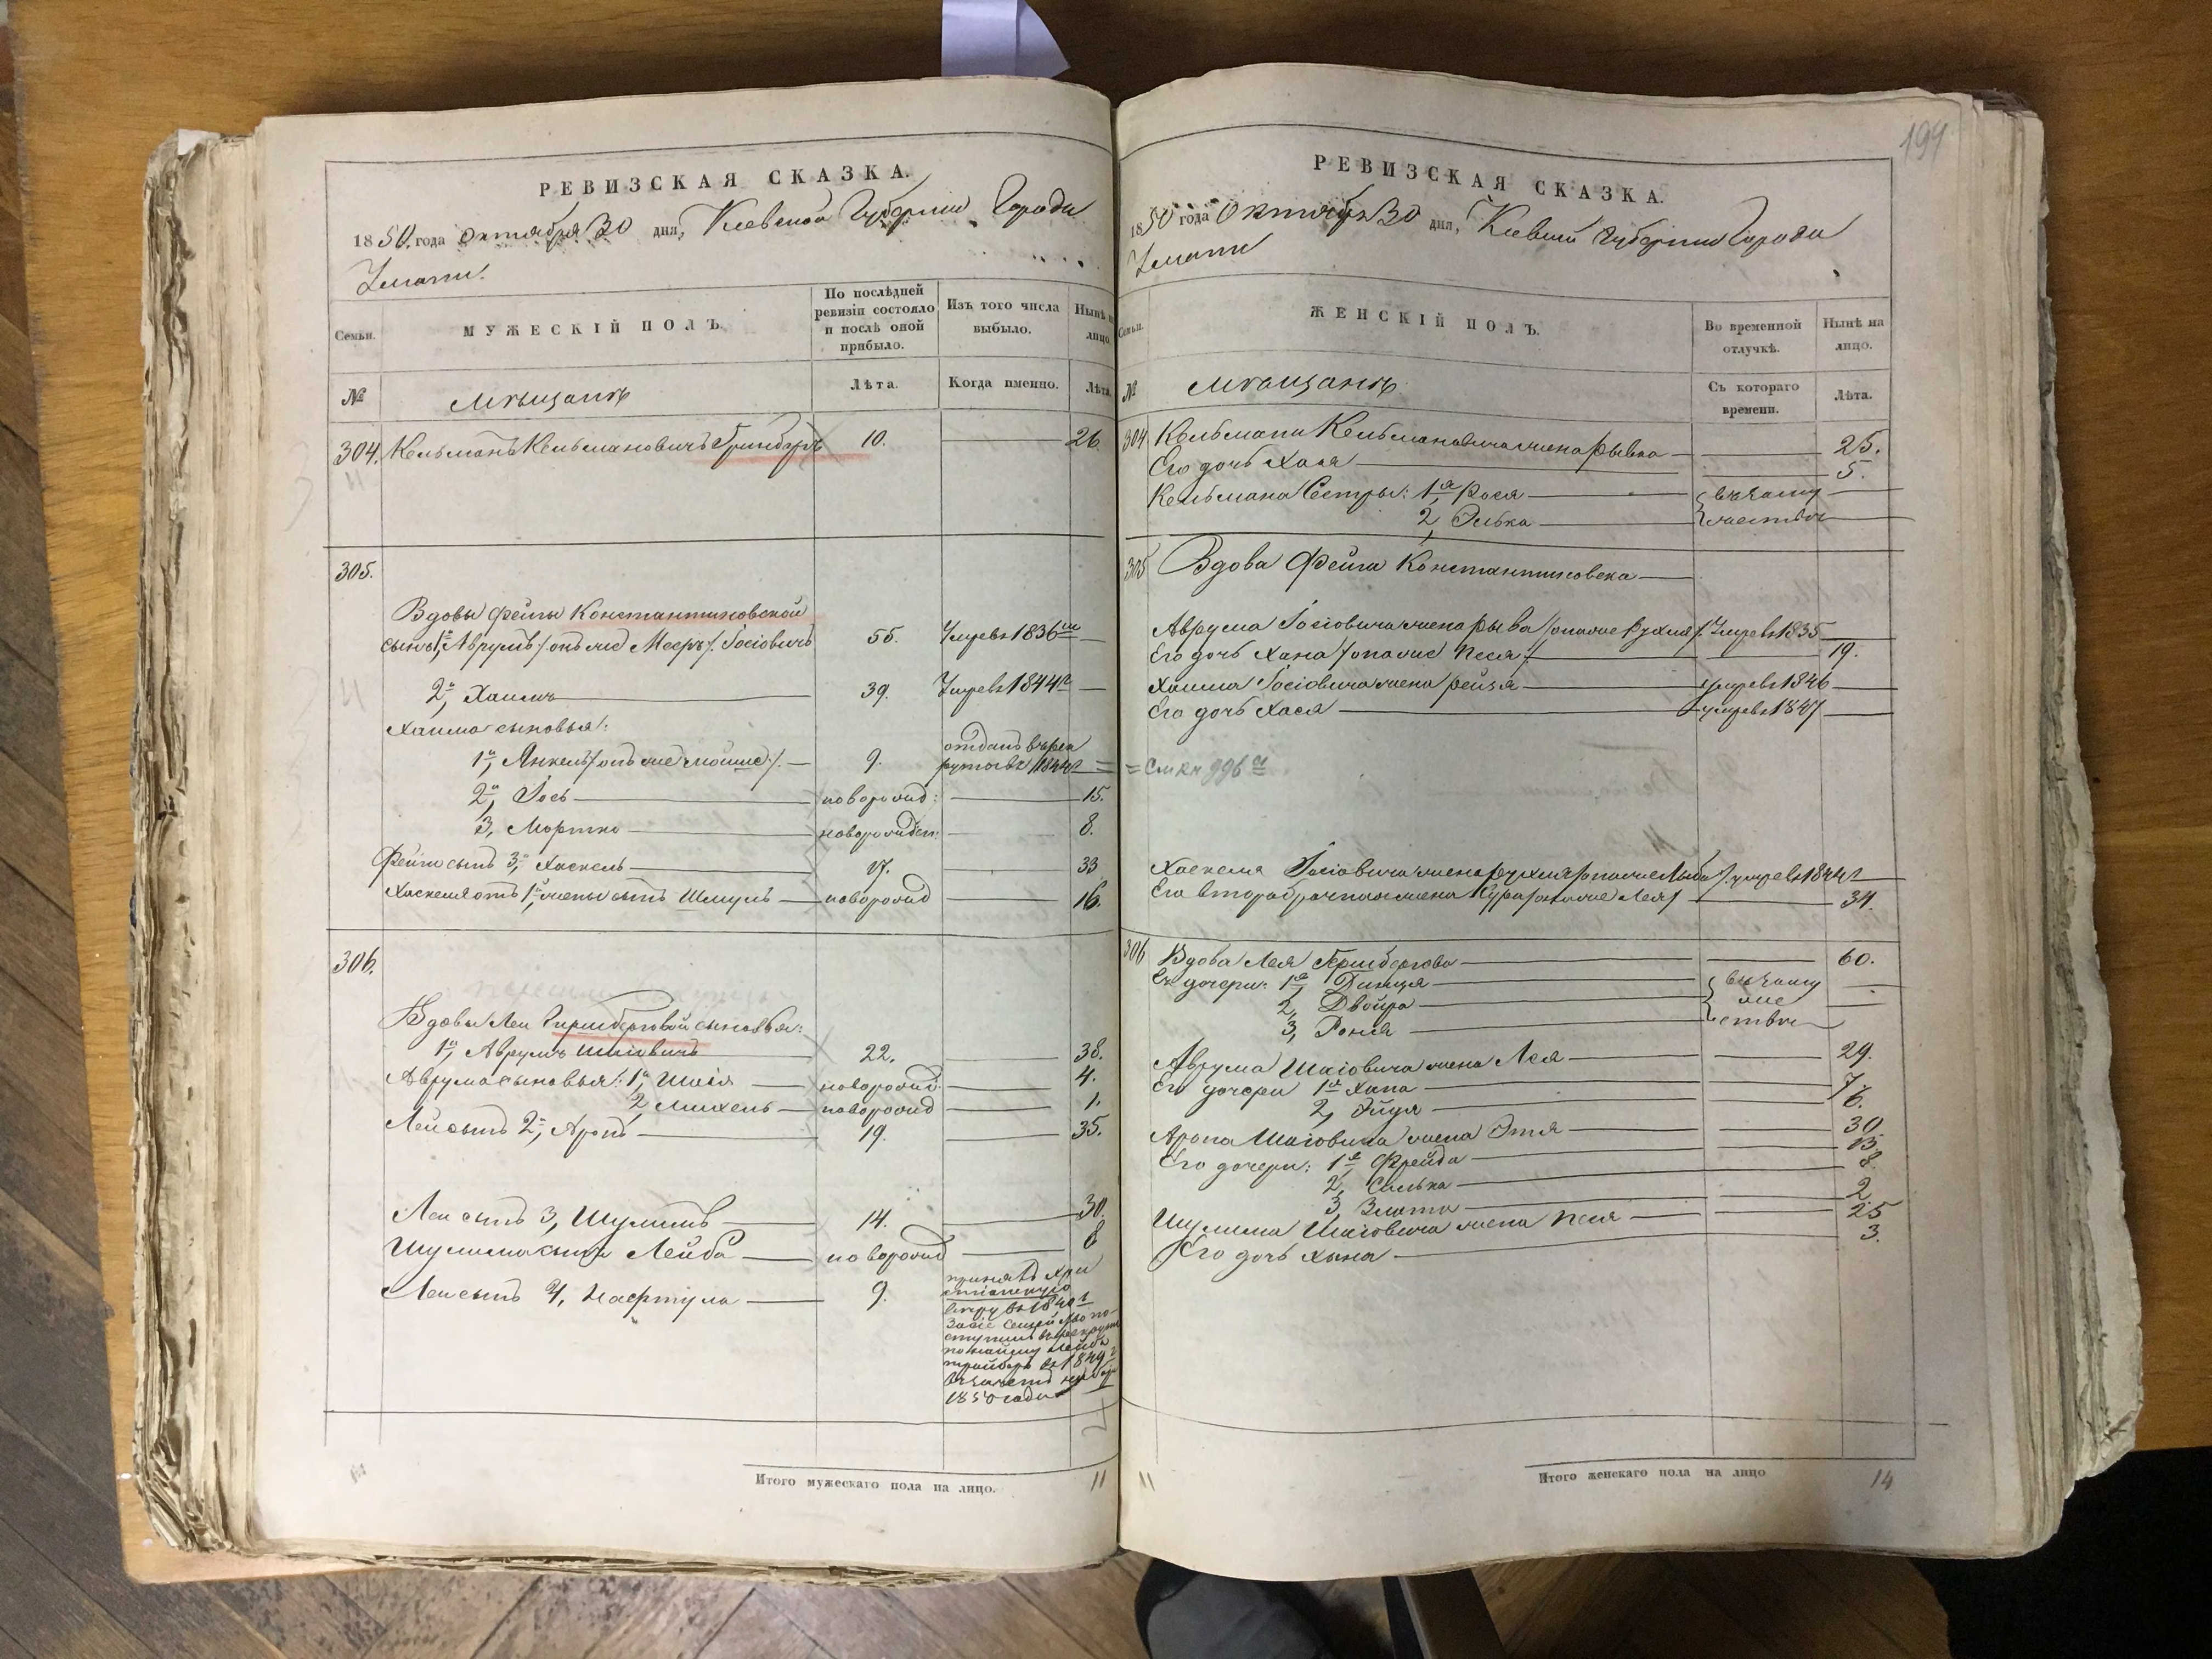 РЕВИЗСКАЯ СКАЗКА.
1850. года октября 30 дня, Киевской Губернии Города
Умани.
Семьи.
МУЖЕСКІЙ ПОЛЪ.
По послѣдней ревизіи состояло и послѣ оной прибыло.
Изъ того числа выбыло.
Нынѣ на лицо.
№
Мѣщанъ
Лѣта.
Когда именно.
Лѣта.
304. Кельманъ Кельмановичъ Гринбергъ 10. 26.
305.
Вдовы Фейги Константиновской
сынъ 1й, Аврумъ /онъ же Мееръ/. Іосіовичъ 55. Умеръ въ 1836м
2й, Хаимъ 39. Умеръ въ 1844м
Хаима сыновья:
1й, Янкель /онъ же Мошие/. 9. отданъ въ рекруты въ 1844г
2й, Іось новорожд: 15.
3, Мортко новорожден: 8.
Фейги сынъ 3й, Хаскель 17. 33
Хаскеля отъ 1й жены сынъ Шмуль новорожд 16.
306.
Вдовы Леи Гринберговой сыновья:
1й, Аврумъ Шаіовичъ 22. 38.
Аврума сыновья: 1й, Шаія новорожд: 4.
2, Михель новорожд 1.
Леи сынъ 2й, Аронъ 19. 35.
Леи сынъ 3, Шулимъ 14. 30.
Шулима сынъ Лейба новорожд 8
Леи сынъ 4, Нафтула 9. принялъ хри
стіанскую
вѣру въ 1840г
1850 года
Итого мужескаго пола на лицо. 11
194
РЕВИЗСКАЯ СКАЗКА.
1850 года Октября 30 дня, Кіевской Губерніи Города
Умани
Семьи.
ЖЕНСКІЙ ПОЛЪ.
Во временной отлучкѣ.
Нынѣ на лицо.
№
Мѣщанъ
Съ котораго времени.
Лѣта.
304 Кельмана Кельмановича жена Рывка 25.
Его дочь Хая 5.
Кельмана Сестры: 1я Рося въ заму
2, Элька жествѣ
305 Вдова Фейга Константиновска
Аврума Іосіовича жена Рыва /она же Рухля/. Умерла 1835
Его дочь Хана /она же Песя/ 19.
Хаима Іосіовича жена Рейзя умерла 1846
Его дочь Хася умерла 1847
= См № 996й
Хаскеля Іосіовича жена Рухля /она же /. умерла 1844г
Его второбрачная жена Сура /она же Лея/ 31.
306 Вдова Лея Гринбергова 60.
Ея дочери: 1я, въ заму
2, Двойра же
3, Роня ствѣ
Аврума Шаіовича жена Лея 29.
Его дочери 1я Хана 7.
2, 6.
Арона Шаіовича жена Этя 30
Его дочери: 1я Фрейда 13
2, 8.
3, Злата 2.
Шулима Шаіовича жена Песя 25
Его дочь Хына 3.
11
Итого женскаго пола на лицо 14